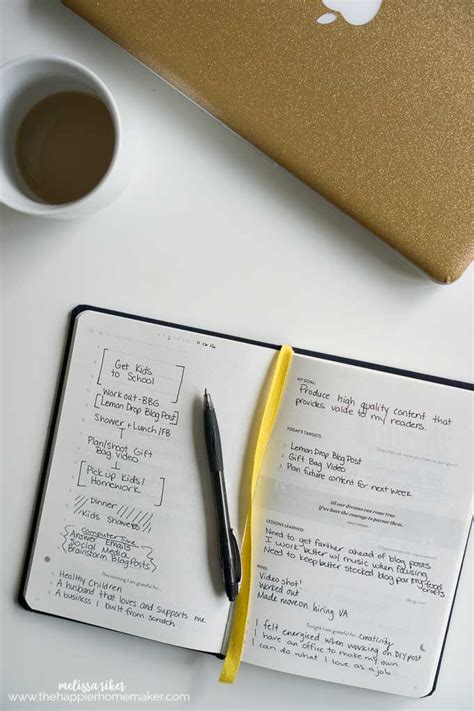 Get Kids
to School
Work out-BBG
Lemon Drop Blog Post
Shower + Lunch/FB
Plan/Shoot Gift
Bag Video
Pick up Kids!
Homework
Dinner
Kids Showers
Computer Time
Answer Emails
Social Media
Brainstorm Blog Posts
This morning I am grateful for...
Healthy Children
A husband that loves and supports me
A business I built from scratch
MY GOAL:
Produce high quality content that
provides value to my readers.
TODAY'S TARGETS:
Lemon Drop Blog Post
Gift Bag Video
Plan future content for next week
All our dreams can come true
if we have the courage to pursue them.
LESSONS LEARNED:
Need to get farther ahead of blog posts
I work better w/ music when focusing
Need to keep better stocked blog post
WINS:
Video shot!
Worked out
Made move on hiring VA
Tonight I am grateful for...
creativity
I felt energized when working on DIY post
I have an office to make my own
I can do what I love as a job
melissa riker
www.thehappierhomemaker.com